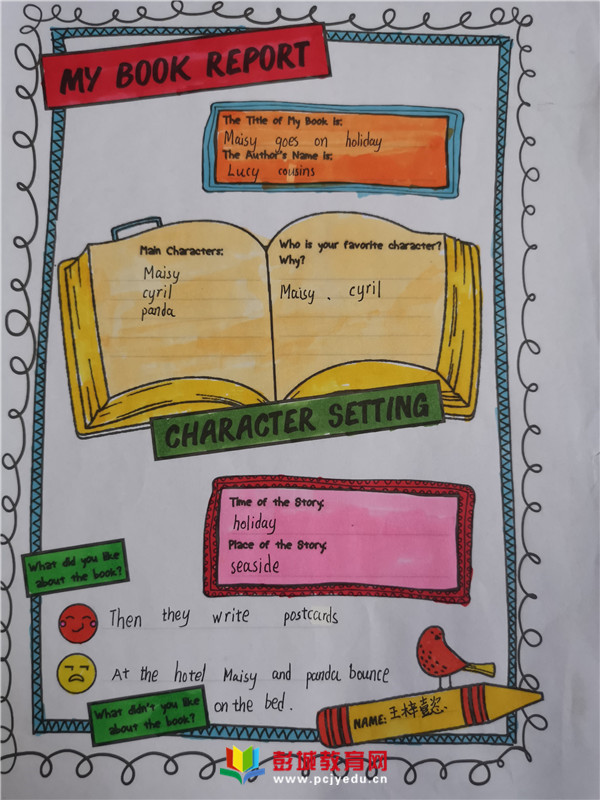 MY BOOK REPORT
The Title of My Book is:
Maisy goes on holiday
The Author's Name is:
Lucy cousins
Main Characters:
Maisy
cyril
panda
Who is your favorite character?
Why?
Maisy . cyril
CHARACTER SETTING
Time of the Story:
holiday
Place of the Story:
seaside
What did you like
about the book?
Then they write postcards
At the hotel Maisy and panda bounce
on the bed.
What didn't you like
about the book?
NAME: 王梓懿
彭城教育网
www.pcjyedu.cn